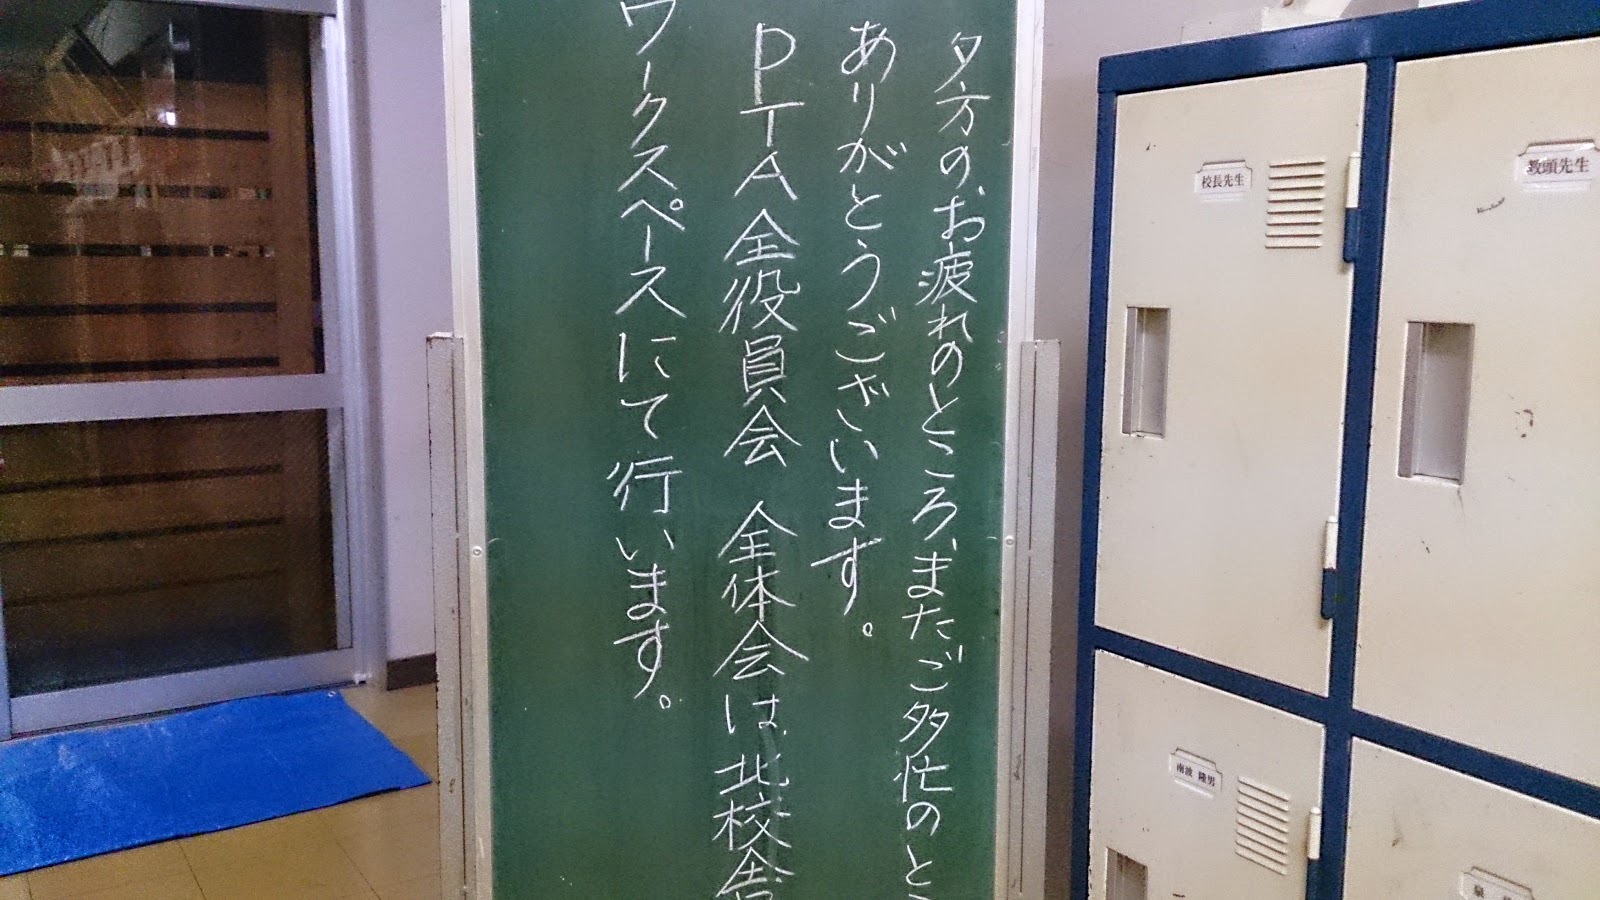 夕方の、お疲れのところ、またご多忙のと
ありがとうございます。
PTA全役員会 全体会は、北校舎
ワークスペースにて行います。
校長先生
教頭先生
南波 隆男